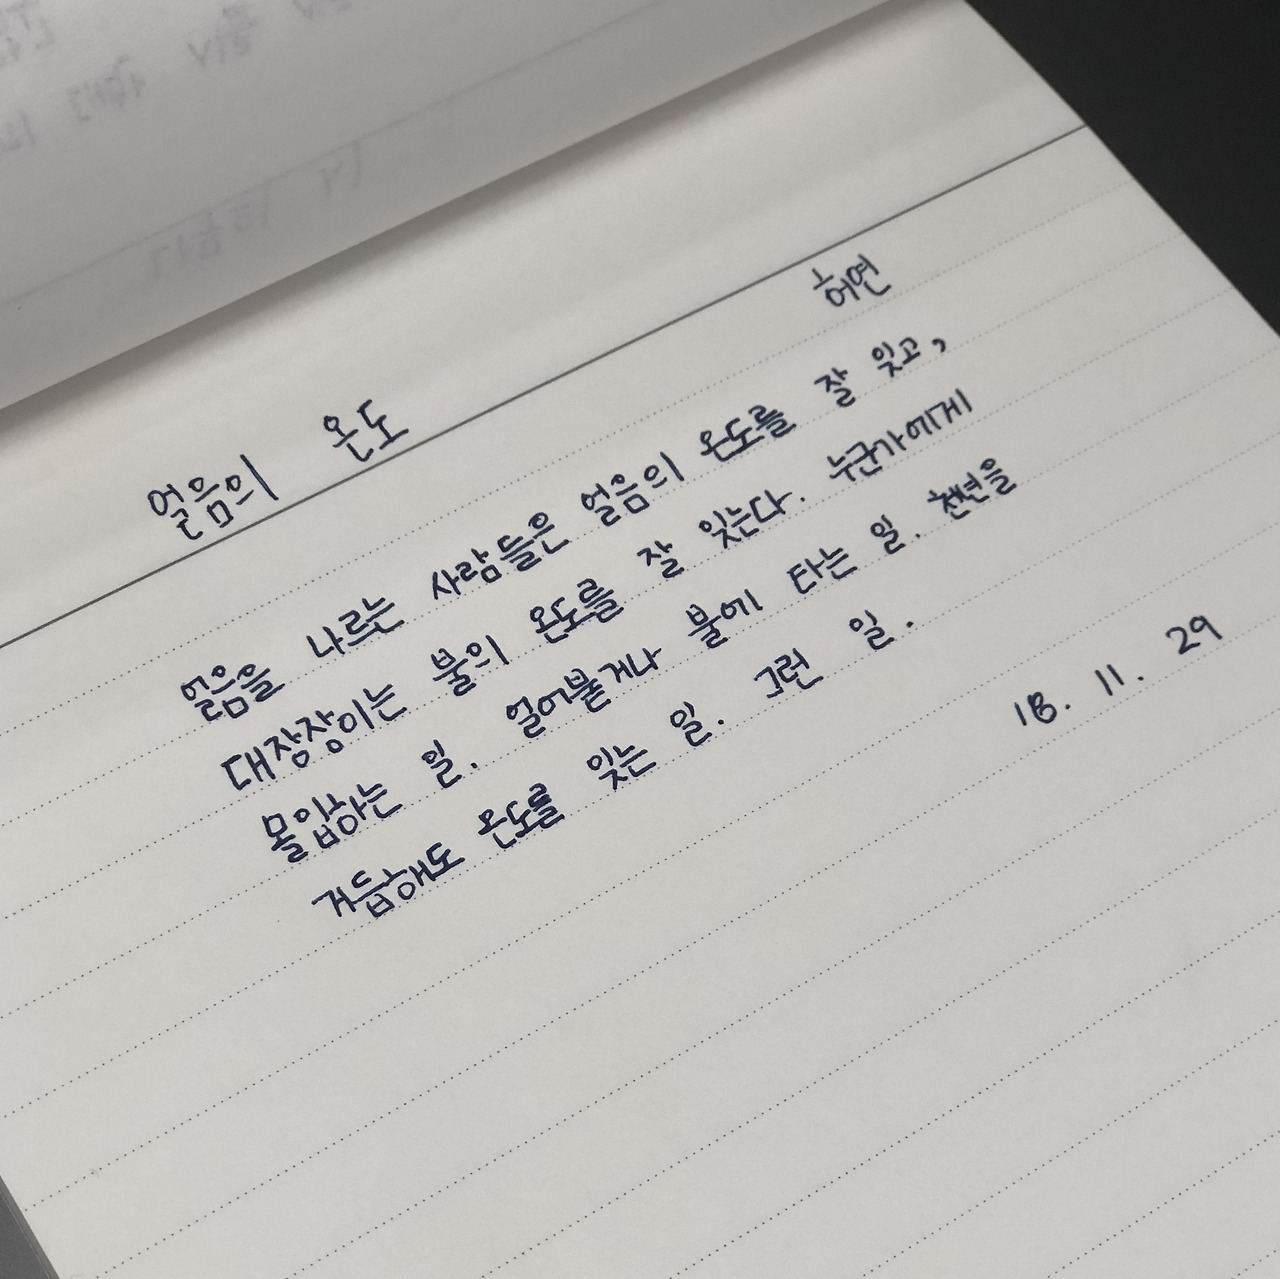 얼음의 온도
허연
얼음을 나르는 사람들은 얼음의 온도를 잘 잊고,
대장장이는 불의 온도를 잘 잊는다. 누군가에게
몰입하는 일. 얼어붙거나 불에 타는 일. 천년을
거듭해도 온도를 잊는 일. 그런 일.
18. 11. 29